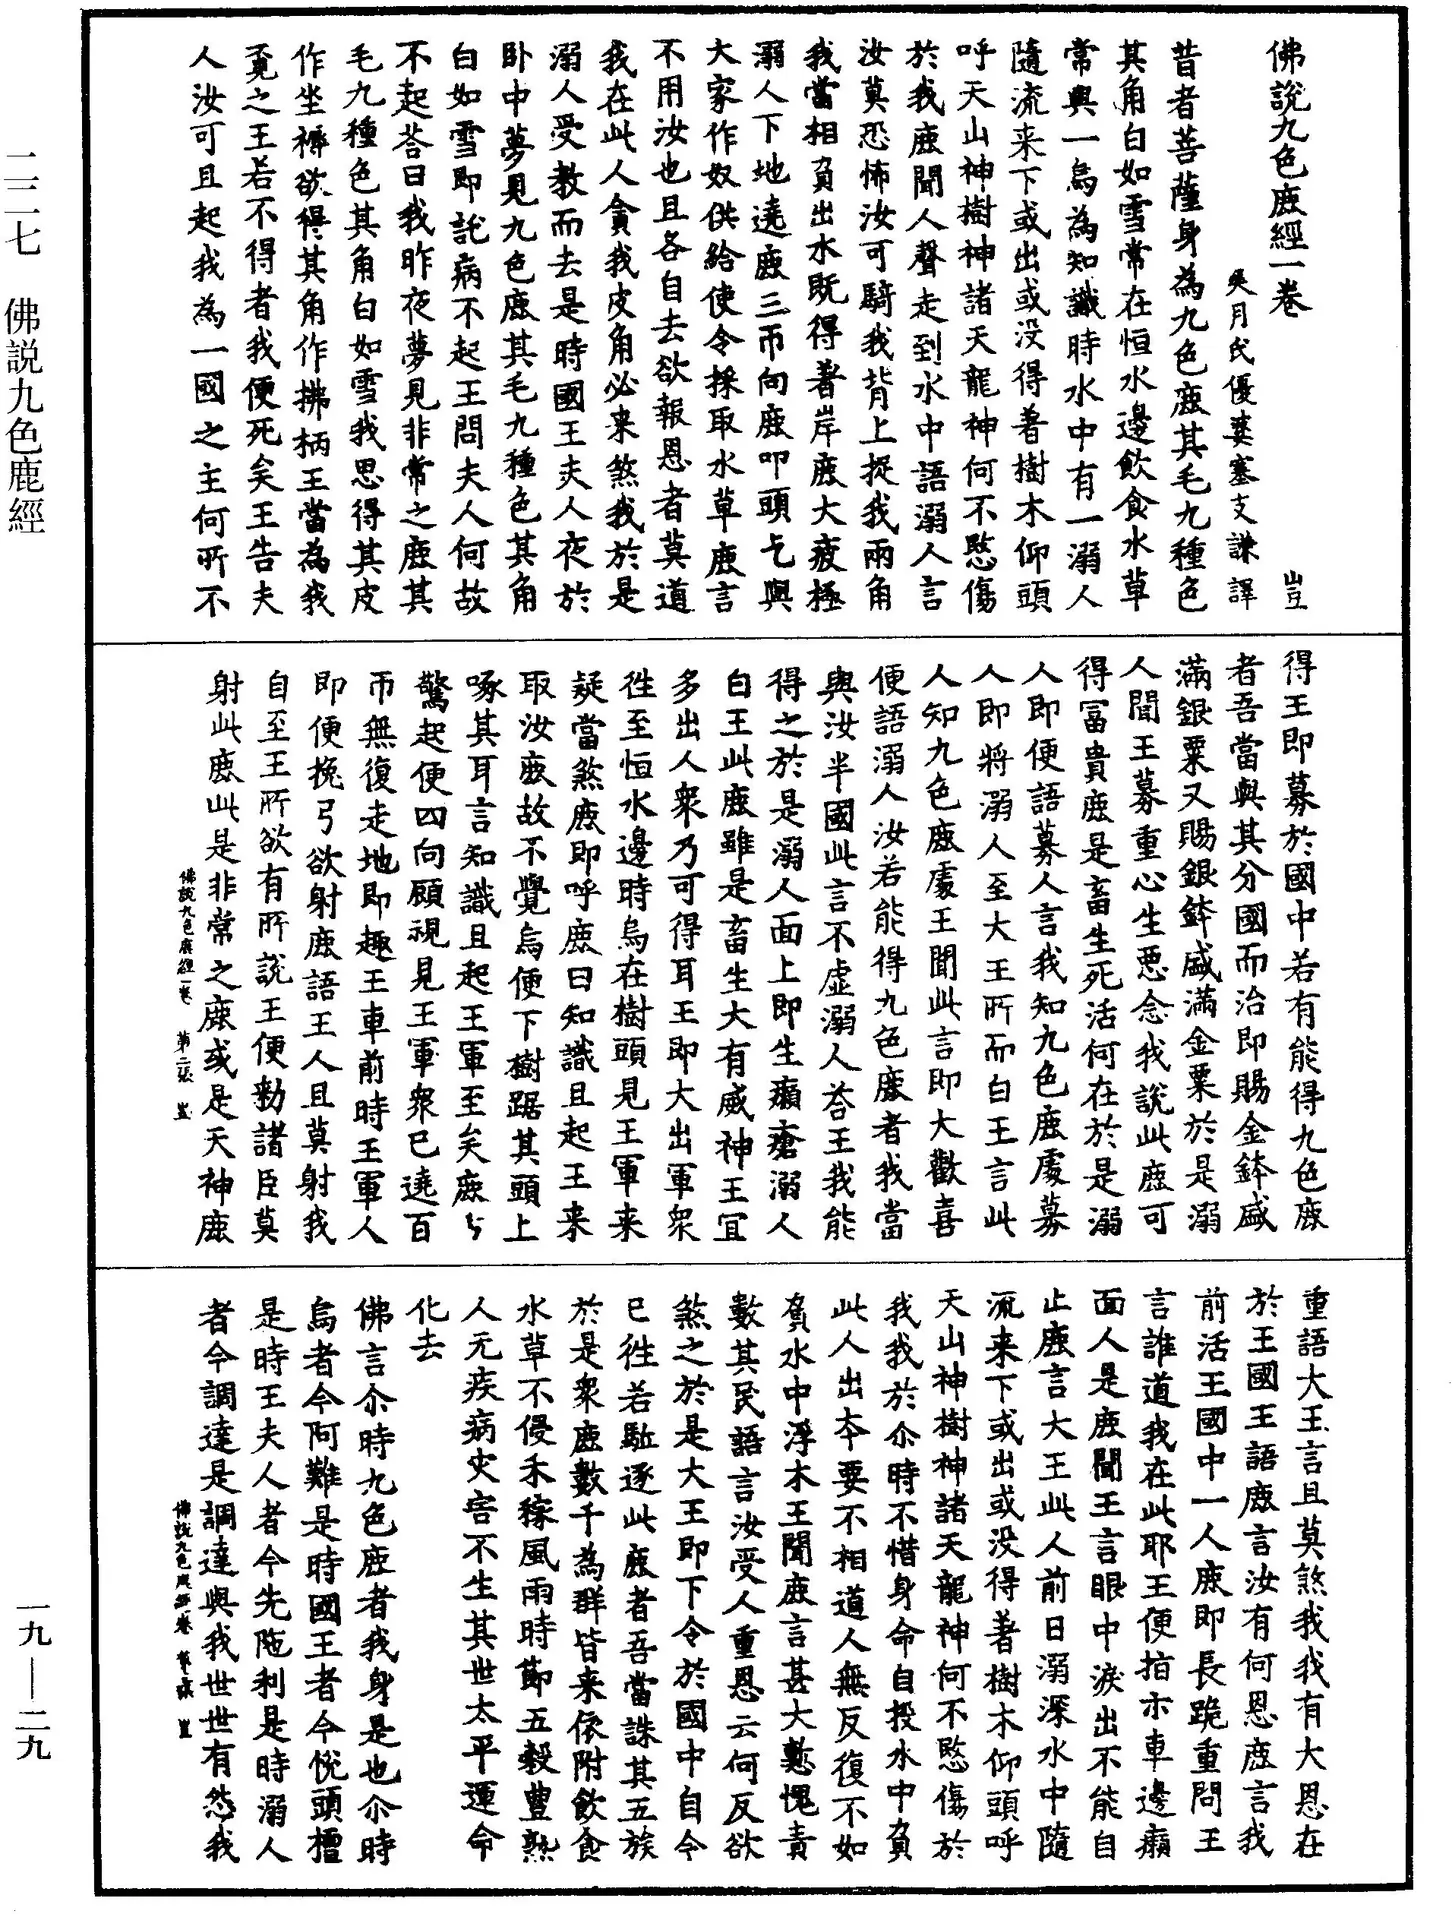 佛說九色鹿經一卷 豈
吳月氏優婆塞支謙譯
昔者菩薩身為九色鹿其毛九種色
其角白如雪常在恒水邊飲食水草
常與一烏為知識時水中有一溺人
隨流来下或出或没得著樹木仰頭
呼天山神樹神諸天龍神何不愍傷
於我鹿聞人聲走到水中語溺人言
汝莫恐怖汝可騎我背上捉我兩角
我當相負出水既得著岸鹿大疲極
溺人下地遶鹿三帀向鹿叩頭乞與
大家作奴供給使令採取水草鹿言
不用汝也且各自去欲報恩者莫道
我在此人貪我皮角必来煞我於是
溺人受教而去是時國王夫人夜於
卧中夢見九色鹿其毛九種色其角
白如雪即託病不起王問夫人何故
不起荅曰我昨夜夢見非常之鹿其
毛九種色其角白如雪我思得其皮
作坐褥欲得其角作拂柄王當為我
覓之王若不得者我便死矣王告夫
人汝可且起我為一國之主何所不
得王即募於國中若有能得九色鹿
者吾當與其分國而治即賜金鉢盛
滿銀粟又賜銀鉢盛滿金粟於是溺
人聞王募重心生悪念我說此鹿可
得冨貴鹿是畜生死活何在於是溺
人即便語募人言我知九色鹿處募
人即將溺人至大王所而白王言此
人知九色鹿處王聞此言即大歡喜
便語溺人汝若能得九色鹿者我當
與汝半國此言不虛溺人荅王我能
得之於是溺人面上即生癩瘡溺人
白王此鹿雖是畜生大有威神王宜
多出人衆乃可得耳王即大出軍衆
徃至恒水邊時烏在樹頭見王軍来
疑當煞鹿即呼鹿曰知識且起王来
取汝鹿故不覺烏便下樹踞其頭上
啄其耳言知識且起王軍至矣鹿ㄣ
驚起便四向顧視見王軍衆已遶百
帀無復走地即趣王車前時王軍人
即便挽弓欲射鹿語王人且莫射我
自至王所欲有所說王便勑諸臣莫
射此鹿此是非常之鹿或是天神鹿
佛說九色鹿經一卷 第二張 豈
重語大王言且莫煞我我有大恩在
於王國王語鹿言汝有何恩鹿言我
前活王國中一人鹿即長跪重問王
言誰道我在此耶王便指示車邊癩
面人是鹿聞王言眼中淚出不能自
止鹿言大王此人前日溺深水中隨
流来下或出或没得著樹木仰頭呼
天山神樹神諸天龍神何不愍傷於
我我於尒時不惜身命自投水中負
此人出本要不相道人無反復不如
負水中浮木王聞鹿言甚大慙愧責
數其民語言汝受人重恩云何反欲
煞之於是大王即下令於國中自今
已徃若駈逐此鹿者吾當誅其五族
於是衆鹿數千為群皆来依附飲食
水草不侵禾稼風雨時節五穀豊熟
人无疾病灾害不生其世太平運命
化去
佛言尒時九色鹿者我身是也尒時
烏者今阿難是時國王者今悅頭檀
是時王夫人者今先陁利是時溺人
者今調達是調達與我世世有怨我
二二七 佛説九色鹿經
一九—二九